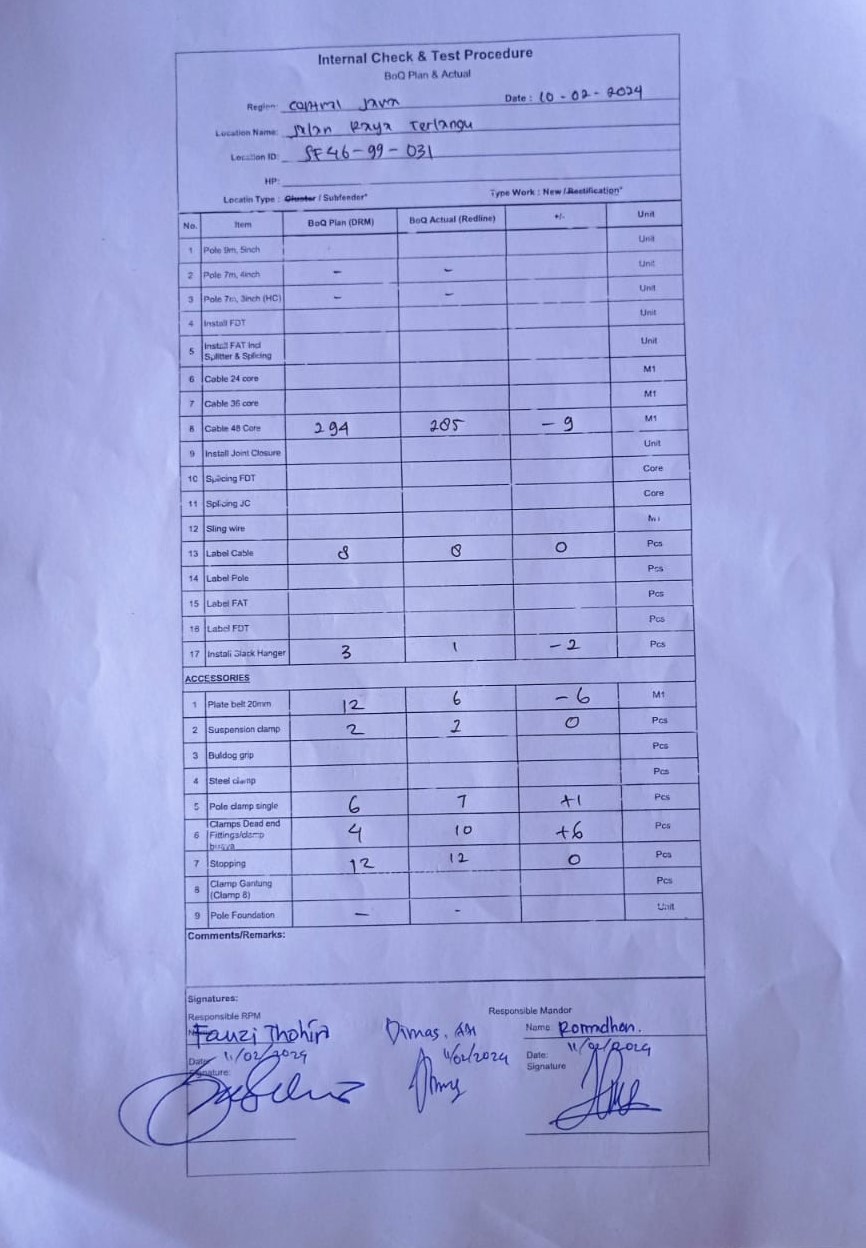 Internal Check & Test Procedure
BoQ Plan & Actual
Region: Central Java Date : 10 - 02 - 2024
Location Name: Jalan Raya Terlangu
Location ID: SF46-99-031
HP:
Locatin Type : Cluster / Subfeeder* Type Work : New / Restification*
No. Item BoQ Plan (DRM) BoQ Actual (Redline) +/- Unit
1 Pole 9m, 5inch Unit
2 Pole 7m, 4inch - - Unit
3 Pole 7m, 3inch (HC) - - Unit
4 Install FDT Unit
5 Install FAT Incl Splitter & Splicing Unit
6 Cable 24 core M1
7 Cable 36 core M1
8 Cable 48 Core 294 285 - 9 M1
9 Install Joint Closure Unit
10 Splicing FDT Core
11 Splicing JC Core
12 Sling wire M1
13 Label Cable 8 8 0 Pcs
14 Label Pole Pcs
15 Label FAT Pcs
16 Label FDT Pcs
17 Install Slack Hanger 3 1 - 2 Pcs
ACCESSORIES
1 Plate belt 20mm 12 6 - 6 M1
2 Suspension clamp 2 2 0 Pcs
3 Buldog grip Pcs
4 Steel clamp Pcs
5 Pole clamp single 6 7 +1 Pcs
6 Clamps Dead end Fittings/clamp 4 10 +6 Pcs
7 Stopping 12 12 0 Pcs
8 Clamp Gantung (Clamp 8) Pcs
9 Pole Foundation - - Unit
Comments/Remarks:
Signatures:
Responsible RPM Responsible Mandor
Fauzi Thohir Dimas. Name: Romadhon.
Date: 11/02/2024 11/02/2024 Date: 11/02/2024
Signature: Signature